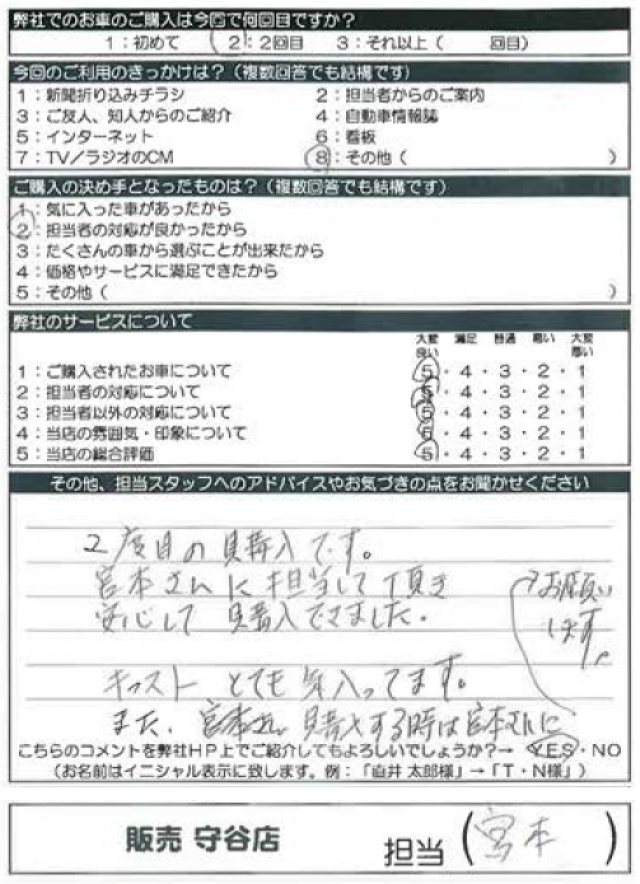 弊社でのお車のご購入は今回で何回目ですか？
1：初めて　2：2回目　3：それ以上（　　回目）
今回のご利用のきっかけは？（複数回答でも結構です）
1：新聞折り込みチラシ　2：担当者からのご案内
3：ご友人、知人からのご紹介　4：自動車情報誌
5：インターネット　6：看板
7：TV／ラジオのCM　8：その他（　　）
ご購入の決め手となったものは？（複数回答でも結構です）
1：気に入った車があったから
2：担当者の対応が良かったから
3：たくさんの車から選ぶことが出来たから
4：価格やサービスに満足できたから
5：その他（　　）
弊社のサービスについて
大変良い　満足　普通　悪い　大変悪い
1：ご購入されたお車について　5・4・3・2・1
2：担当者の対応について　5・4・3・2・1
3：担当者以外の対応について　5・4・3・2・1
4：当店の雰囲気・印象について　5・4・3・2・1
5：当店の総合評価　5・4・3・2・1
その他、担当スタッフへのアドバイスやお気づきの点をお聞かせください
2度目の購入です。
宮本さんに担当して頂き
安心して購入できました。
キャスト とても気入ってます。
また、購入する時は宮本さんに
お願い
します。
こちらのコメントを弊社HP上でご紹介してもよろしいでしょうか？→ YES・NO
（お名前はイニシャル表示に致します。例：「直井 太郎様」→「T・N様」）
販売 守谷店　担当（宮本）